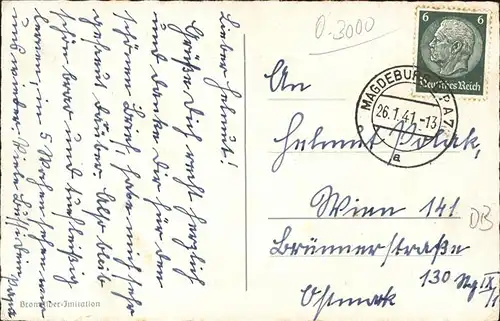 Lieber Helmut!
Grüße Dich recht herzlich
und danke Dir für den
schönen Brief, habe mich sehr
gefreut darüber. Also bleib
schön brav und fleißig
können, in 5 Wochen sehen wir
uns wieder. Viele Bussi Dein
Papa
Bromsilber-Imitation
O-3000
6 6
Deutsches Reich
MAGDEBURG-P.A.7
26.1.41.-13
a
An
Helmut Polak,
Wien 141
Brünnerstraße
130 Stg IX/
Ostmark
DB